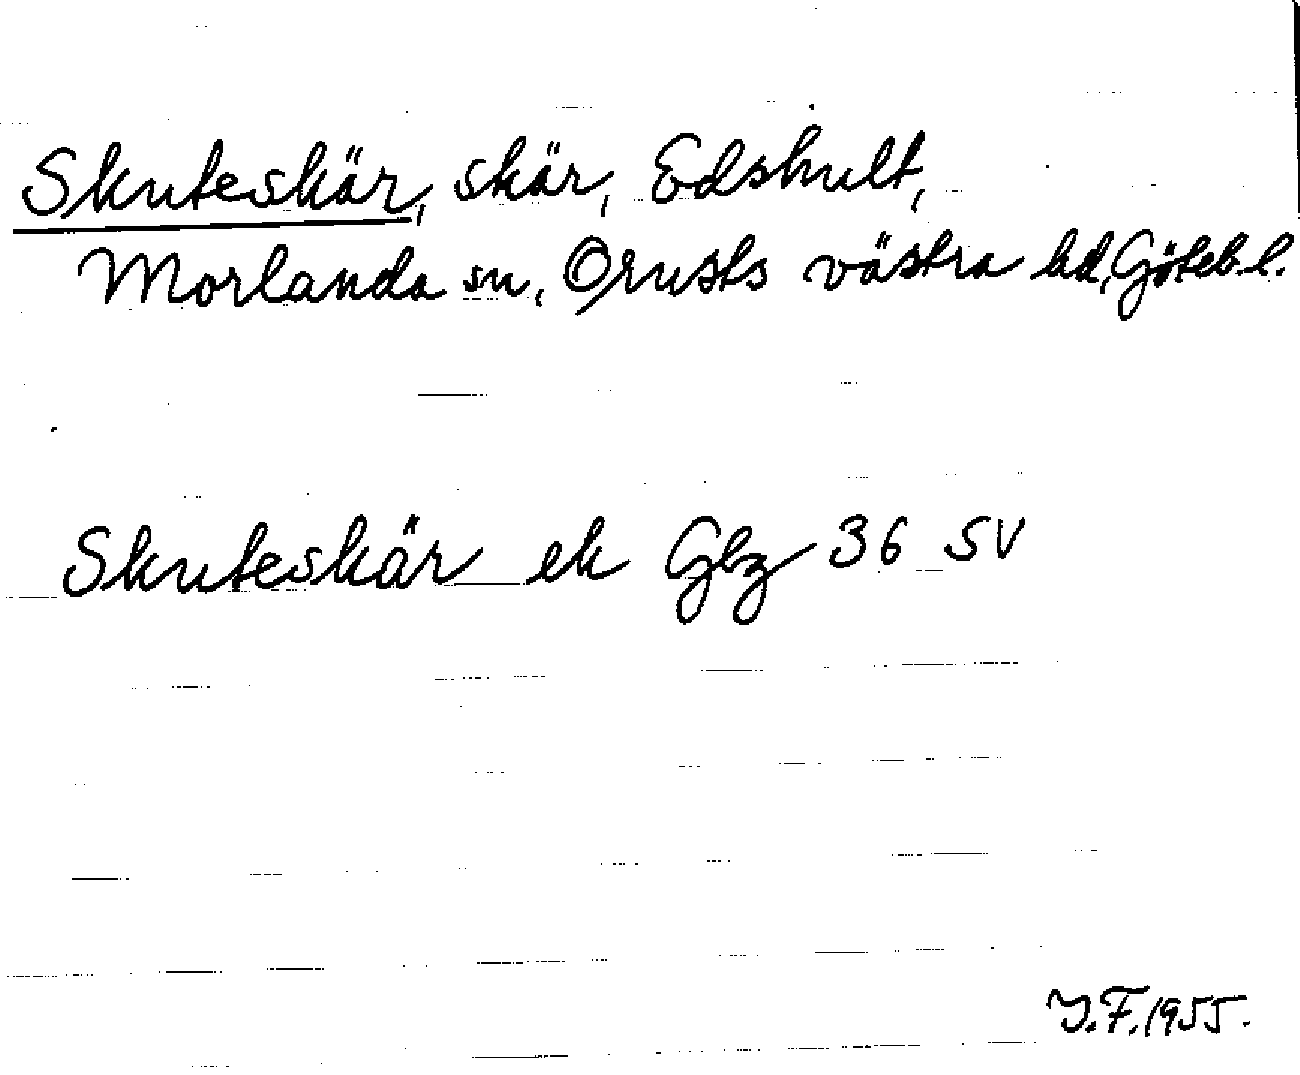 Skuteskär, skär, Edshult,
Morlanda sn, Orusts västra hd, Göteb. l.
Skuteskär ek Gbz 36 SV
J.F. 1955.